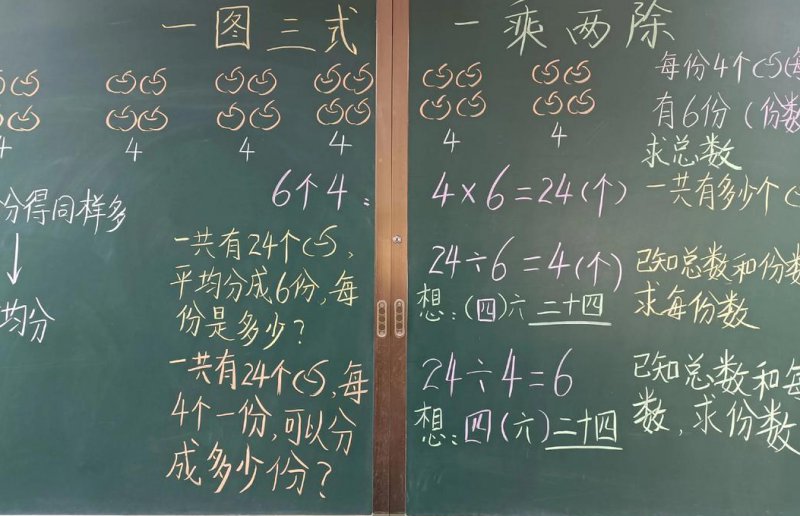 一图三式 一乘两除
4 4 4 4 4 4
每份4个
有6份(份数
求总数
6个4: 4×6=24(个) 一共有多少个
份得同样多
↓
均分
一共有24个,
平均分成6份,每
份是多少?
24÷6=4(个) 已知总数和份数
想:(四)六二十四 求每份数
一共有24个,每
4个一份,可以分
成多少份?
24÷4=6 已知总数和每
想:四(六)二十四 数,求份数